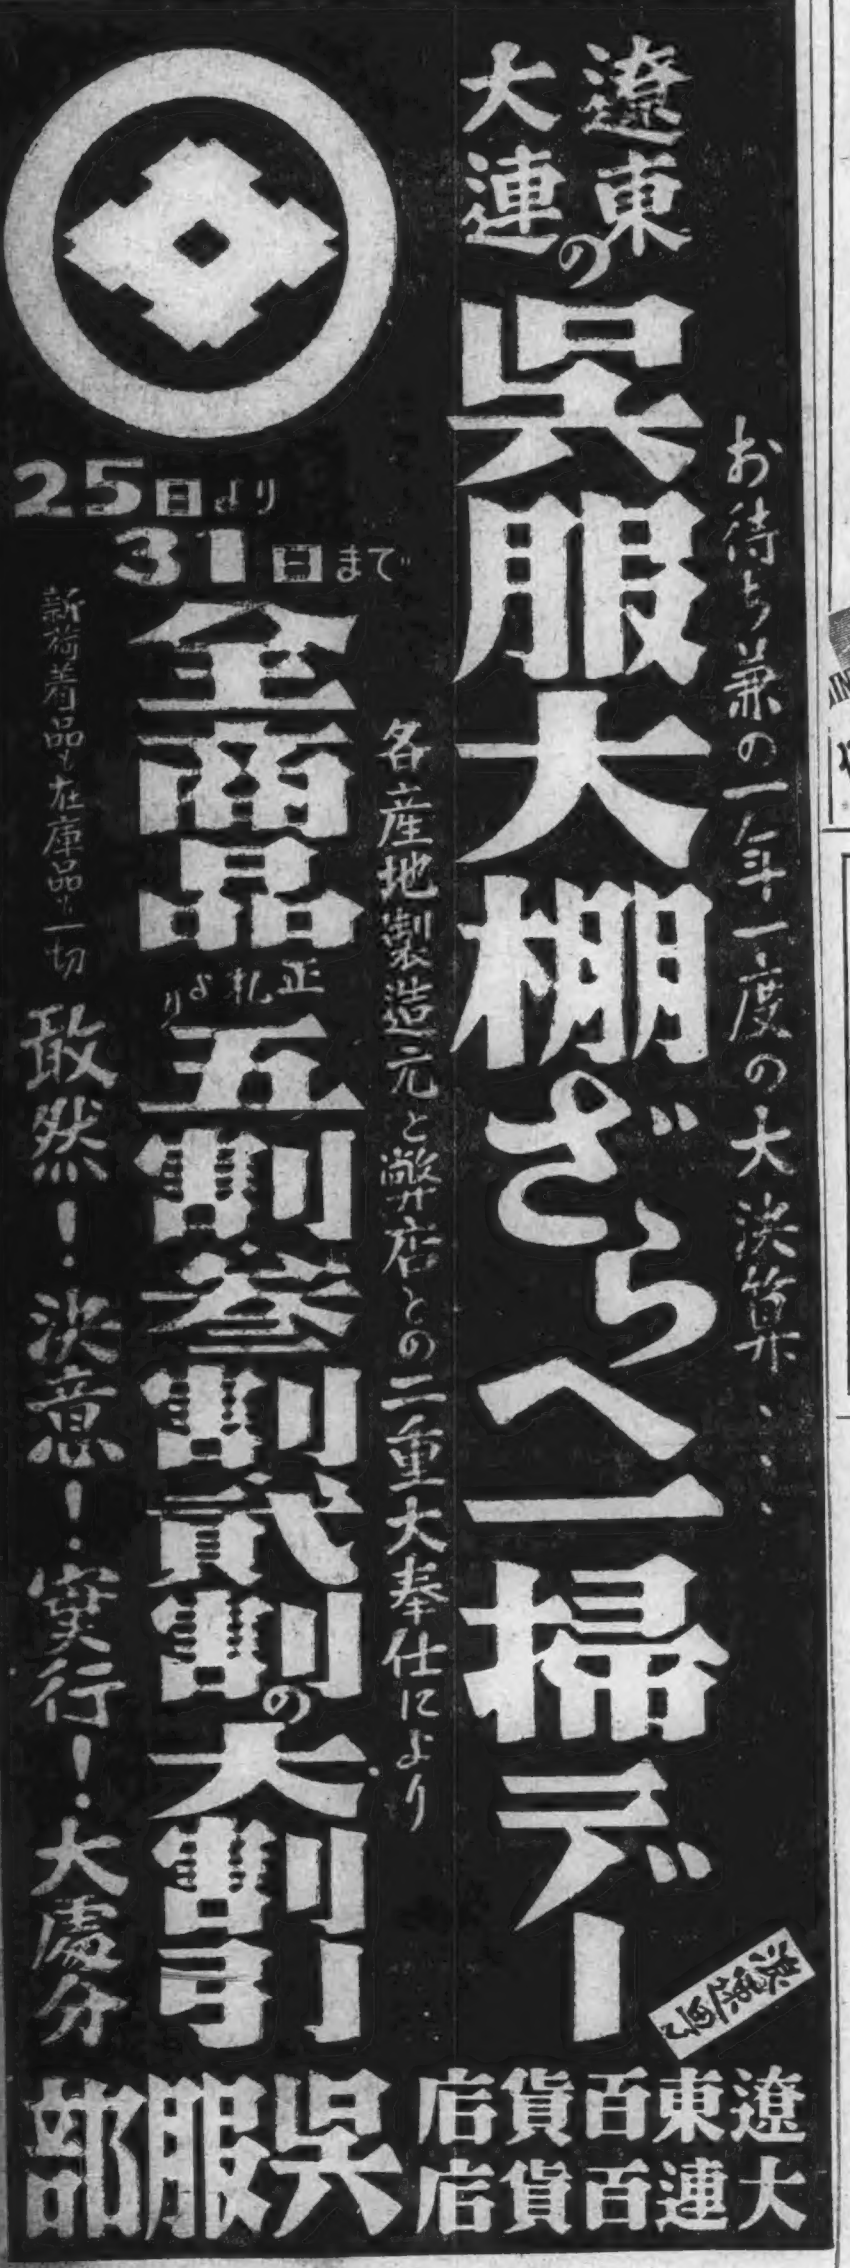 お待ち兼の一年一度の大決算・・・
遼東
大連
の
呉服大棚ざらへ一掃デー
各産地製造元と弊店との二重大奉仕により
25日より
31日まで
全商品
正札より
五割参割貳割の大割引
新荷着品も在庫品も一切
敢然！決意！実行！大處分
遼東百貨店
大連百貨店
呉服部